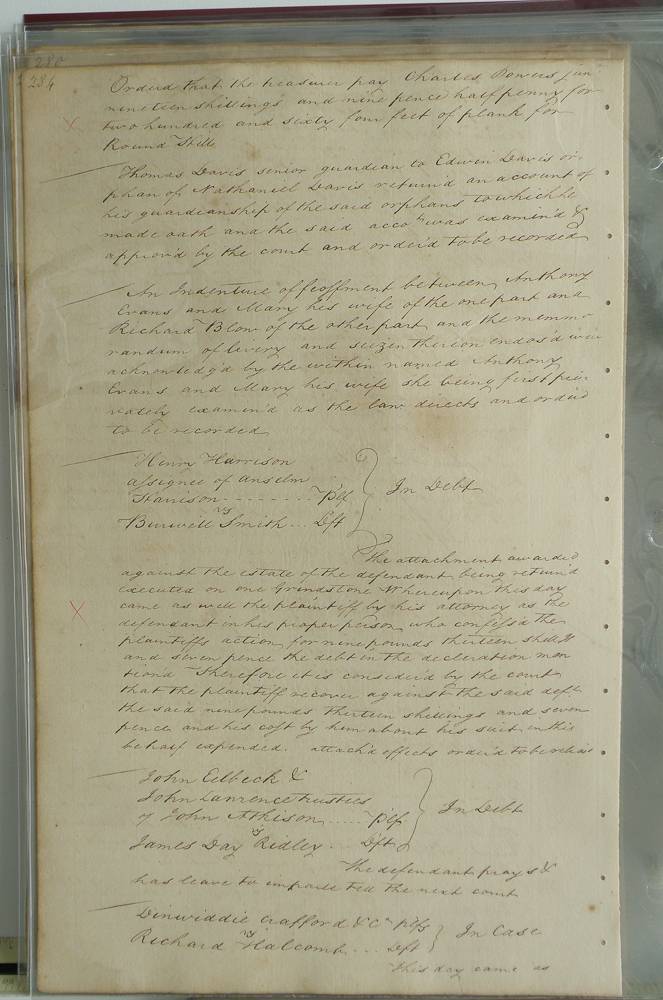 280
284
Orderd that the treasurer pay Charles Powers junr
nineteen shillings and nine pence half penny for
two hundred and sixty four feet of plank for
Round Hill
Thomas Davis senior guardian to Edwin Davis or-
phan of Nathaniell Davis return'd an account of
his guardianship of the said orphans to which he
made oath and the said acco.ts was examin'd &
approv'd by the court and order'd to be recorded
An Indenture of feoffment between Anthony
Evans and Mary his wife of the one part and
Richard Blow of the other part and the memmo
randum of livery and seizen thereon endos'd were
acknowledg'd by the within named Anthony
Evans and Mary his wife she being first pri-
vately examin'd as the law directs and order'd
to be recorded
Henry Harrison
assignee of Anselm
Harrison - - - - - - - - Plf
vs
Burwell Smith ... Dft
In Debt
The attachment awarded
against the estate of the defendant being return'd
executed on one Grindstone Whereupon this day
came as well the plaintiff by his attorney as the
defendant in his proper person who confess'd the
plaintiffs action for nine pounds thirteen shill.gs
and seven pence the debt in the decleration men
tion'd Therefore it is consider'd by the court
that the plaintiff recover against the said deft
the said nine pounds thirteen shillings and seven
pence and his cost by him about his suit in this
behalf expended. attach'd effects order'd to be releas
John Eelbeck &
John Lawrence trustees
of John Atkison ..... Plf
vs
James Day Ridley .. Dft
In Debt
The defendant prays &
has leave to imparle till the next court
Dinwiddie Crafford & Co Plfs
vs
Richard Halcomb ... Deft
In Case
This day came as